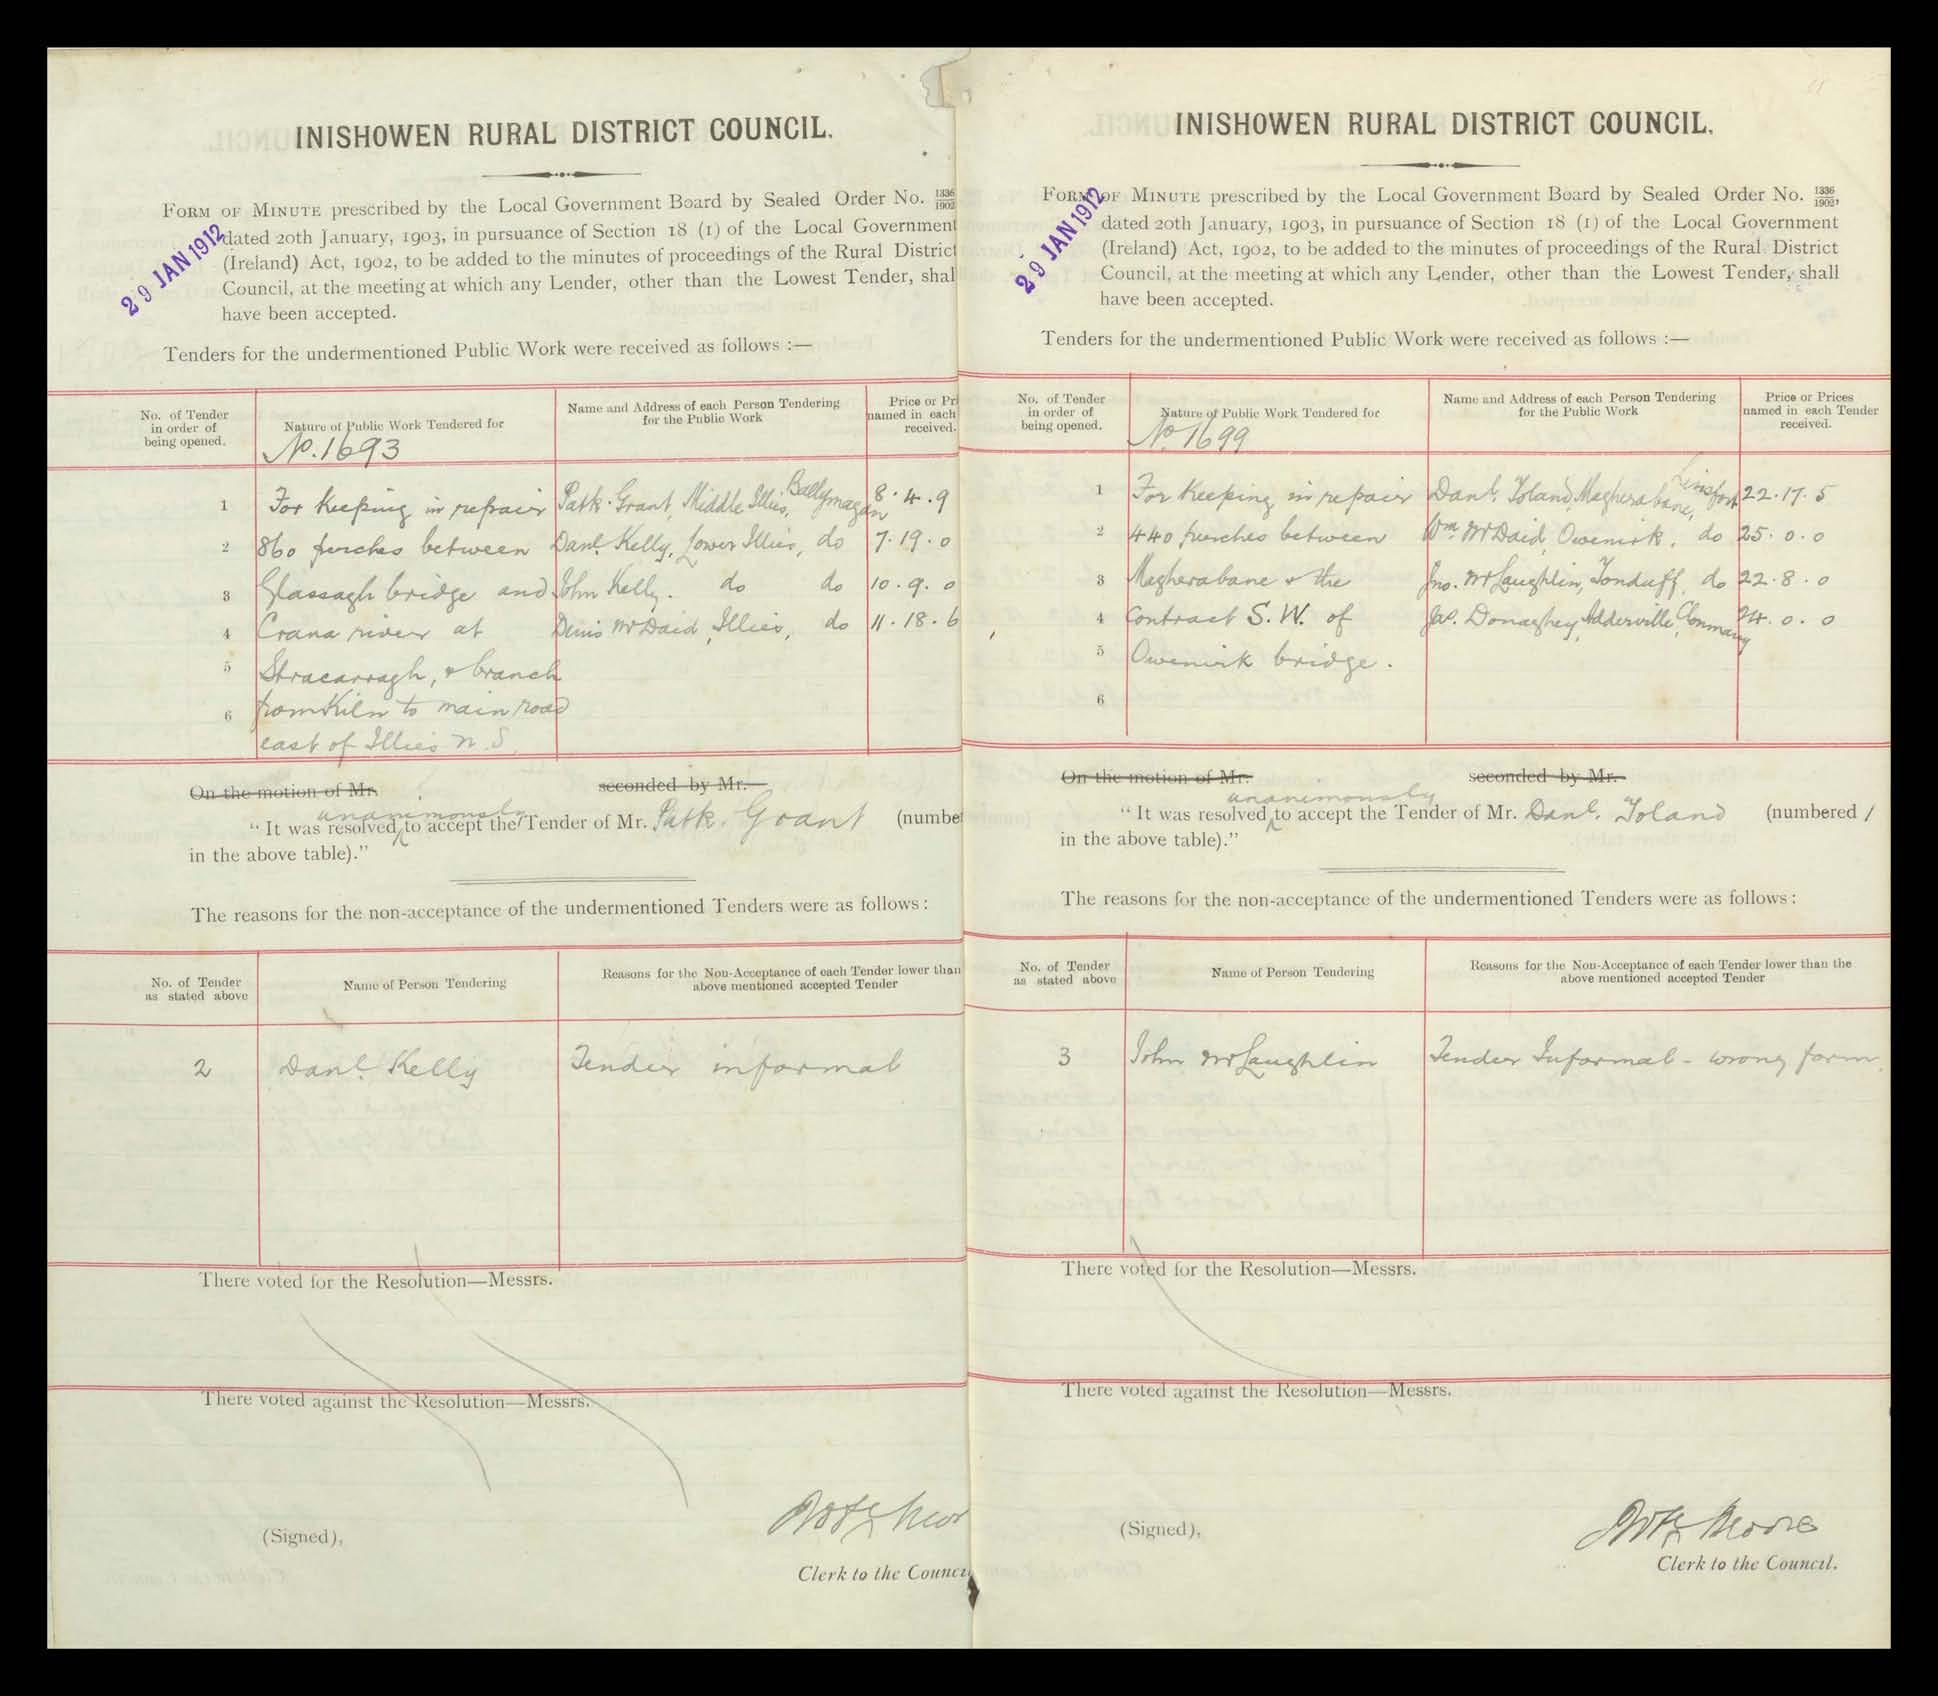 INISHOWEN RURAL DISTRICT COUNCIL.
29 JAN 1912
FORM OF MINUTE prescribed by the Local Government Board by Sealed Order No. 1336/1902
dated 20th January, 1903, in pursuance of Section 18 (1) of the Local Government
(Ireland) Act, 1902, to be added to the minutes of proceedings of the Rural District
Council, at the meeting at which any Lender, other than the Lowest Tender, shal
have been accepted.
Tenders for the undermentioned Public Work were received as follows :—
No. of Tender in order of being opened.
Nature of Public Work Tendered for
No. 1693
Name and Address of each Person Tendering for the Public Work
Price or Pri named in each received.
1 For Keeping in repair Patk. Grant, Middle Illies, Ballymagan 8. 4. 9
2 860 perches between Danl. Kelly, Lower Illies, do 7. 19. 0
3 Glassagh bridge and John Kelly. do do 10. 9. 0
4 Crana river at Denis McDaid, Illies, do 11. 18. 6
5 Stracarragh, & branch
6 from Kiln to main road
east of Illies N.S.
On the motion of Mr. seconded by Mr.
unanimously
"It was resolved to accept the Tender of Mr. Patk. Grant (number
in the above table)."
The reasons for the non-acceptance of the undermentioned Tenders were as follows :
No. of Tender as stated above
Name of Person Tendering
Reasons for the Non-Acceptance of each Tender lower than above mentioned accepted Tender
2 Danl. Kelly Tender informal
There voted for the Resolution—Messrs.
There voted against the Resolution—Messrs.
(Signed),
Clerk to the Council
INISHOWEN RURAL DISTRICT COUNCIL.
29 JAN 1912
FORM OF MINUTE prescribed by the Local Government Board by Sealed Order No. 1336/1902,
dated 20th January, 1903, in pursuance of Section 18 (1) of the Local Government
(Ireland) Act, 1902, to be added to the minutes of proceedings of the Rural District
Council, at the meeting at which any Lender, other than the Lowest Tender, shall
have been accepted.
Tenders for the undermentioned Public Work were received as follows :—
No. of Tender in order of being opened.
Nature of Public Work Tendered for
No. 1699
Name and Address of each Person Tendering for the Public Work
Price or Prices named in each Tender received.
1 For Keeping in repair Danl. Toland, Magherabane, Linsfort 22. 17. 5
2 440 perches between Wm. McDaid, Owenirk, do 25. 0. 0
3 Magherabane & the Jno. McLaughlin, Tonduff, do 22. 8. 0
4 contract S.W. of Jas. Donaghey, Adderville, Clonmany 24. 0. 0
5 Owenirk bridge.
6
On the motion of Mr. seconded by Mr.
unanimously
"It was resolved to accept the Tender of Mr. Danl. Toland (numbered 1
in the above table)."
The reasons for the non-acceptance of the undermentioned Tenders were as follows :
No. of Tender as stated above
Name of Person Tendering
Reasons for the Non-Acceptance of each Tender lower than the above mentioned accepted Tender
3 John McLaughlin Tender Informal - wrong form.
There voted for the Resolution—Messrs.
There voted against the Resolution—Messrs.
(Signed),
Moore
Clerk to the Council.